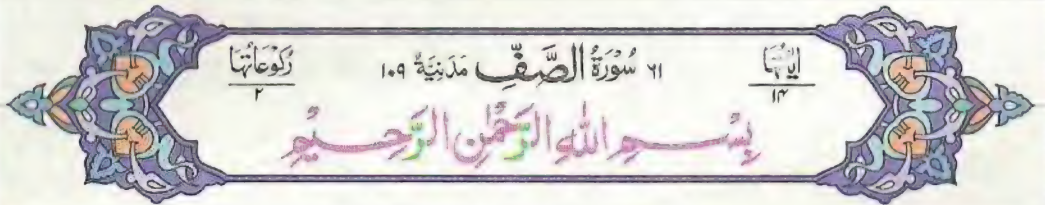 اٰيَاتُهَا ١٤ ٦١ سُوْرَةُ الصَّفِّ مَدَنِيَّةٌ ١٠٩ رُكُوْعَاتُهَا ٢
بِسْمِ اللهِ الرَّحْمٰنِ الرَّحِيْمِ